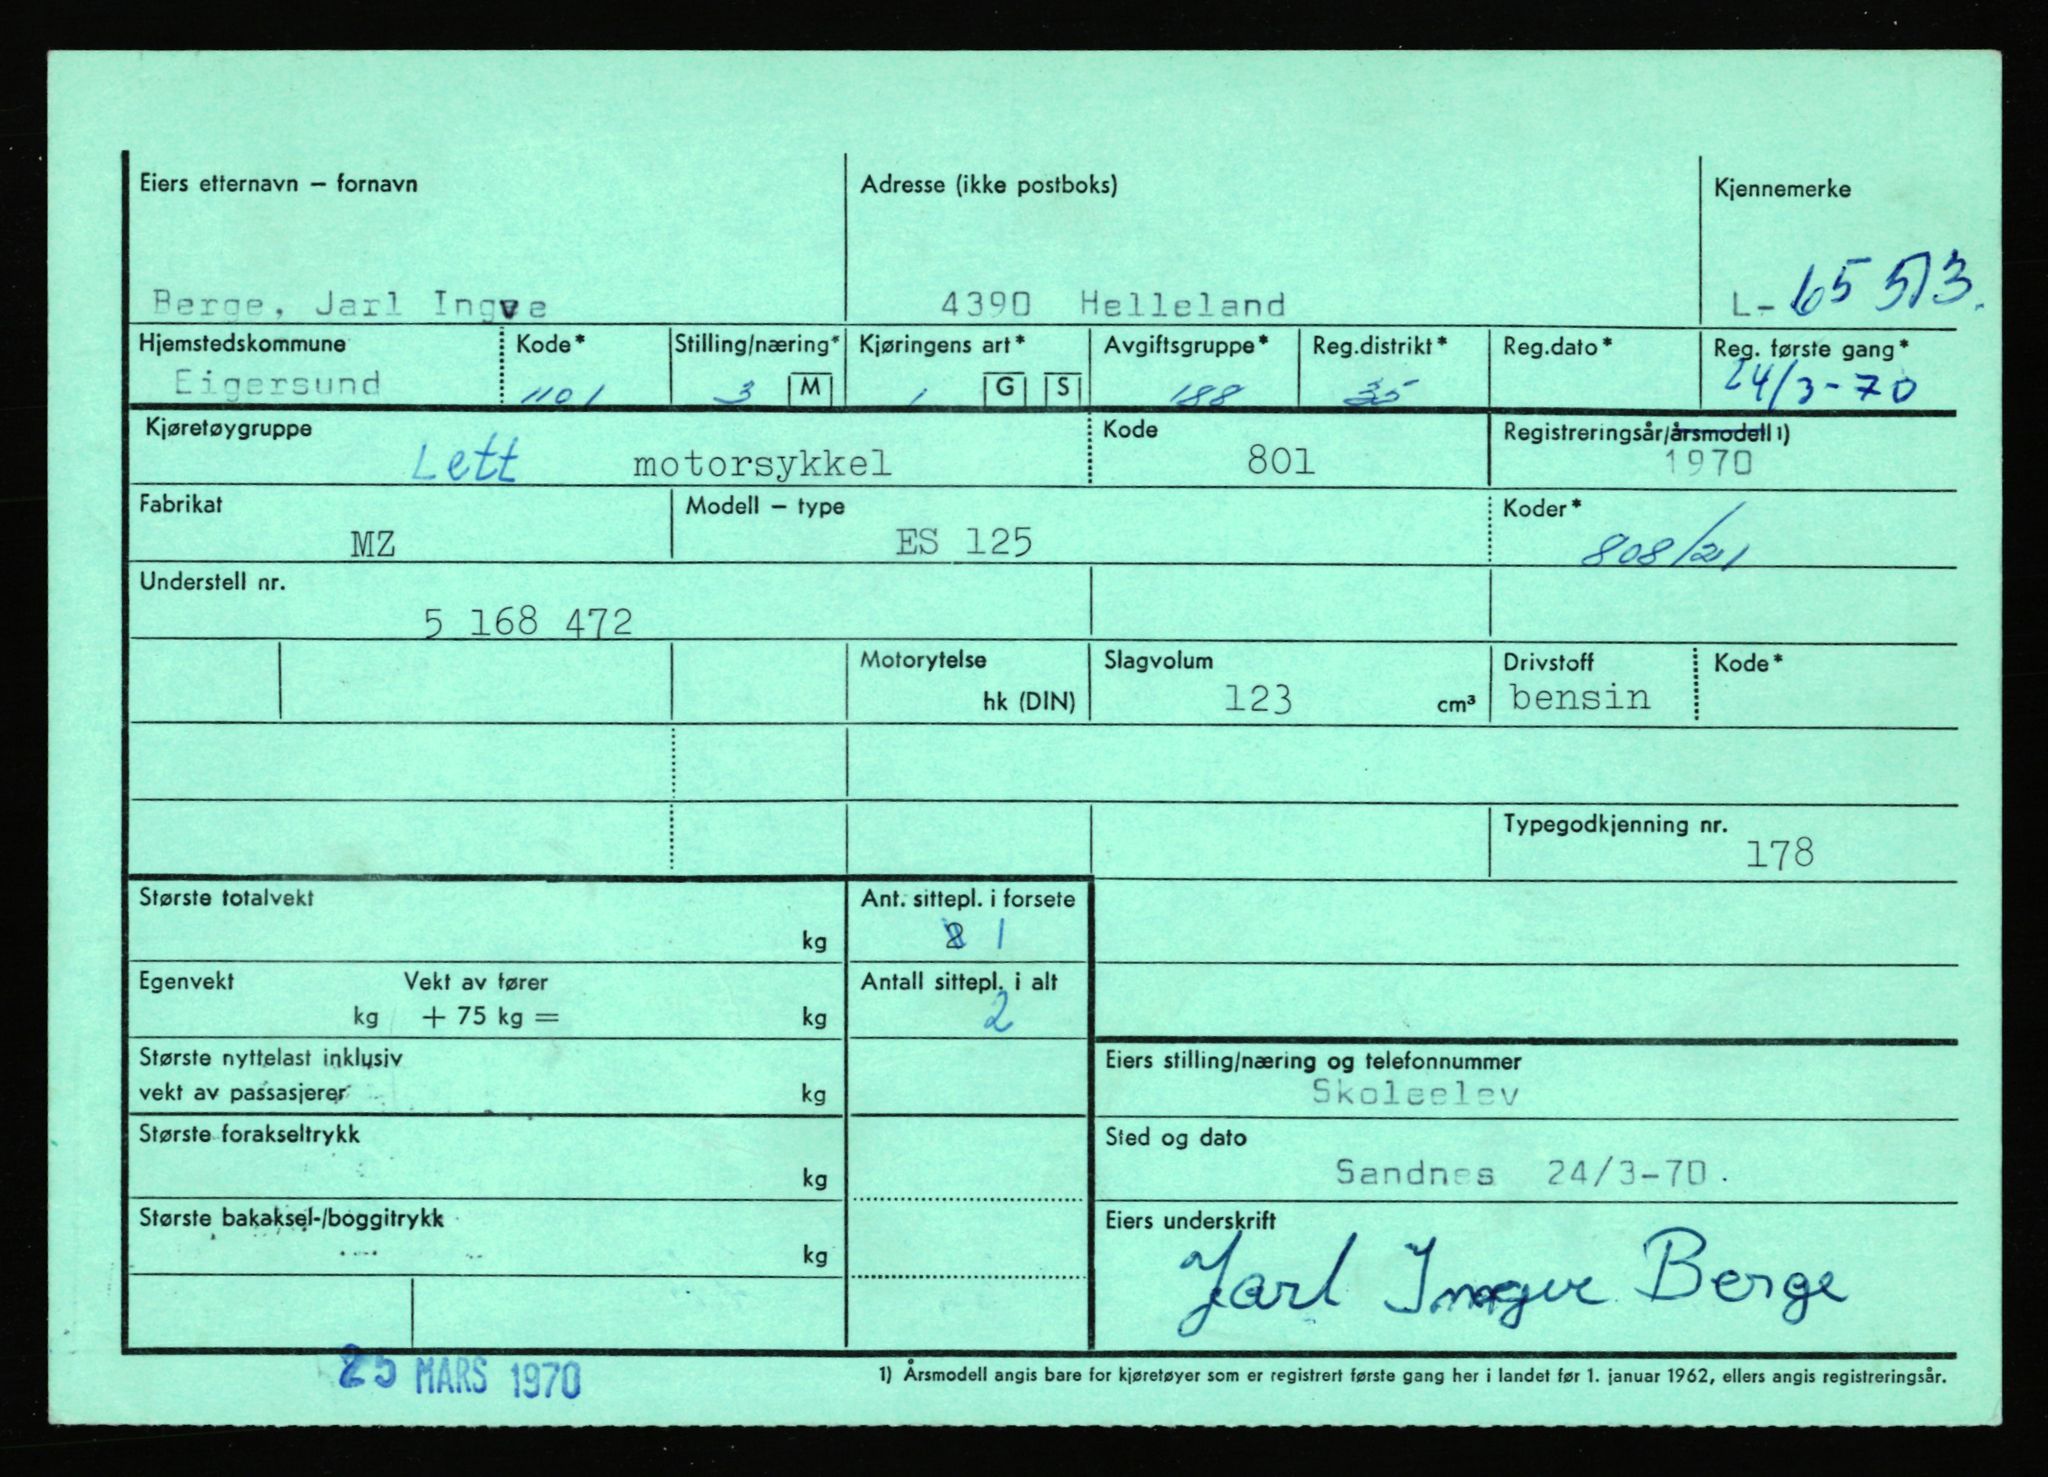 Eiers etternavn – fornavn
Adresse (ikke postboks)
Kjennemerke
Berge, Jarl Ingve
4390 Helleland
L- 65 513.
Hjemstedskommune
Kode*
Stilling/næring*
Kjøringens art*
Avgiftsgruppe*
Reg.distrikt*
Reg.dato*
Reg. første gang*
Eigersund
1101
3 M
1 G S
188
35
24/3-70
Kjøretøygruppe
Kode
Registreringsår/årsmodell 1)
Lett motorsykkel
801
1970
Fabrikat
Modell – type
Koder*
MZ
ES 125
808/21
Understell nr.
5 168 472
Motorytelse
Slagvolum
Drivstoff
Kode*
hk (DIN)
123 cm³
bensin
Typegodkjenning nr.
178
Største totalvekt
kg
Ant. sittepl. i forsete
2 1
Egenvekt Vekt av fører
kg + 75 kg = kg
Antall sittepl. i alt
2
Største nyttelast inklusiv
vekt av passasjerer kg
Eiers stilling/næring og telefonnummer
Skoleelev
Største forakseltrykk
kg
Sted og dato
Sandnes 24/3-70.
Største bakaksel-/boggitrykk
kg
Eiers underskrift
Jarl Ingve Berge
25 MARS 1970
1) Årsmodell angis bare for kjøretøyer som er registrert første gang her i landet før 1. januar 1962, ellers angis registreringsår.